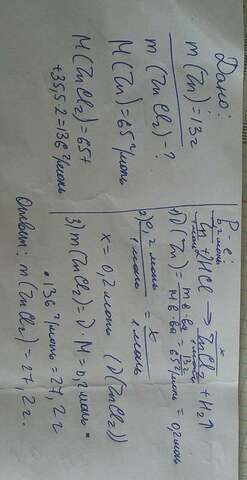 Дано:
m(Zn)=13г
m(ZnCl₂)-?
M(Zn)=65г/моль
M(ZnCl₂)=65+
+35,5·2=136г/моль
Р-е:
0,2моль x
Zn+2HCl → ZnCl₂+H₂↑
1моль 1моль
1) ν(Zn)= m в-ва / M в-ва = 13г / 65г/моль = 0,2моль
2) 0,2моль / 1моль = x / 1моль
x=0,2моль (ν(ZnCl₂))
3) m(ZnCl₂)=ν·M=0,2моль·
·136г/моль=27,2г
Ответ: m(ZnCl₂)=27,2г.